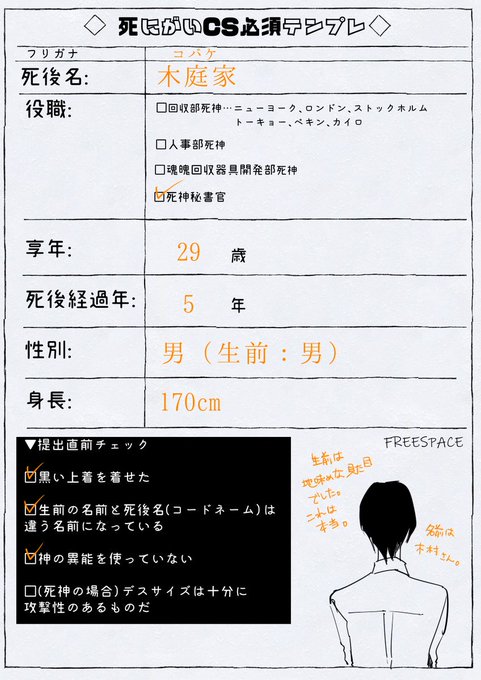 ◇ 死にがいCS必須テンプレ◇
フリガナ コバケ
死後名: 木庭家
役職: □回収部死神…ニューヨーク、ロンドン、ストックホルム
トーキョー、ペキン、カイロ
□人事部死神
□魂魄回収器具開発部死神
☑死神秘書官
享年: 29 歳
死後経過年: 5 年
性別: 男（生前：男）
身長: 170cm
▼提出直前チェック
☑黒い上着を着せた
☑生前の名前と死後名(コードネーム)は
違う名前になっている
☑神の異能を使っていない
□(死神の場合)デスサイズは十分に
攻撃性のあるものだ
FREESPACE
生前は
地味めな見た目
でした。
これは
本当。
名前は
木村さん。